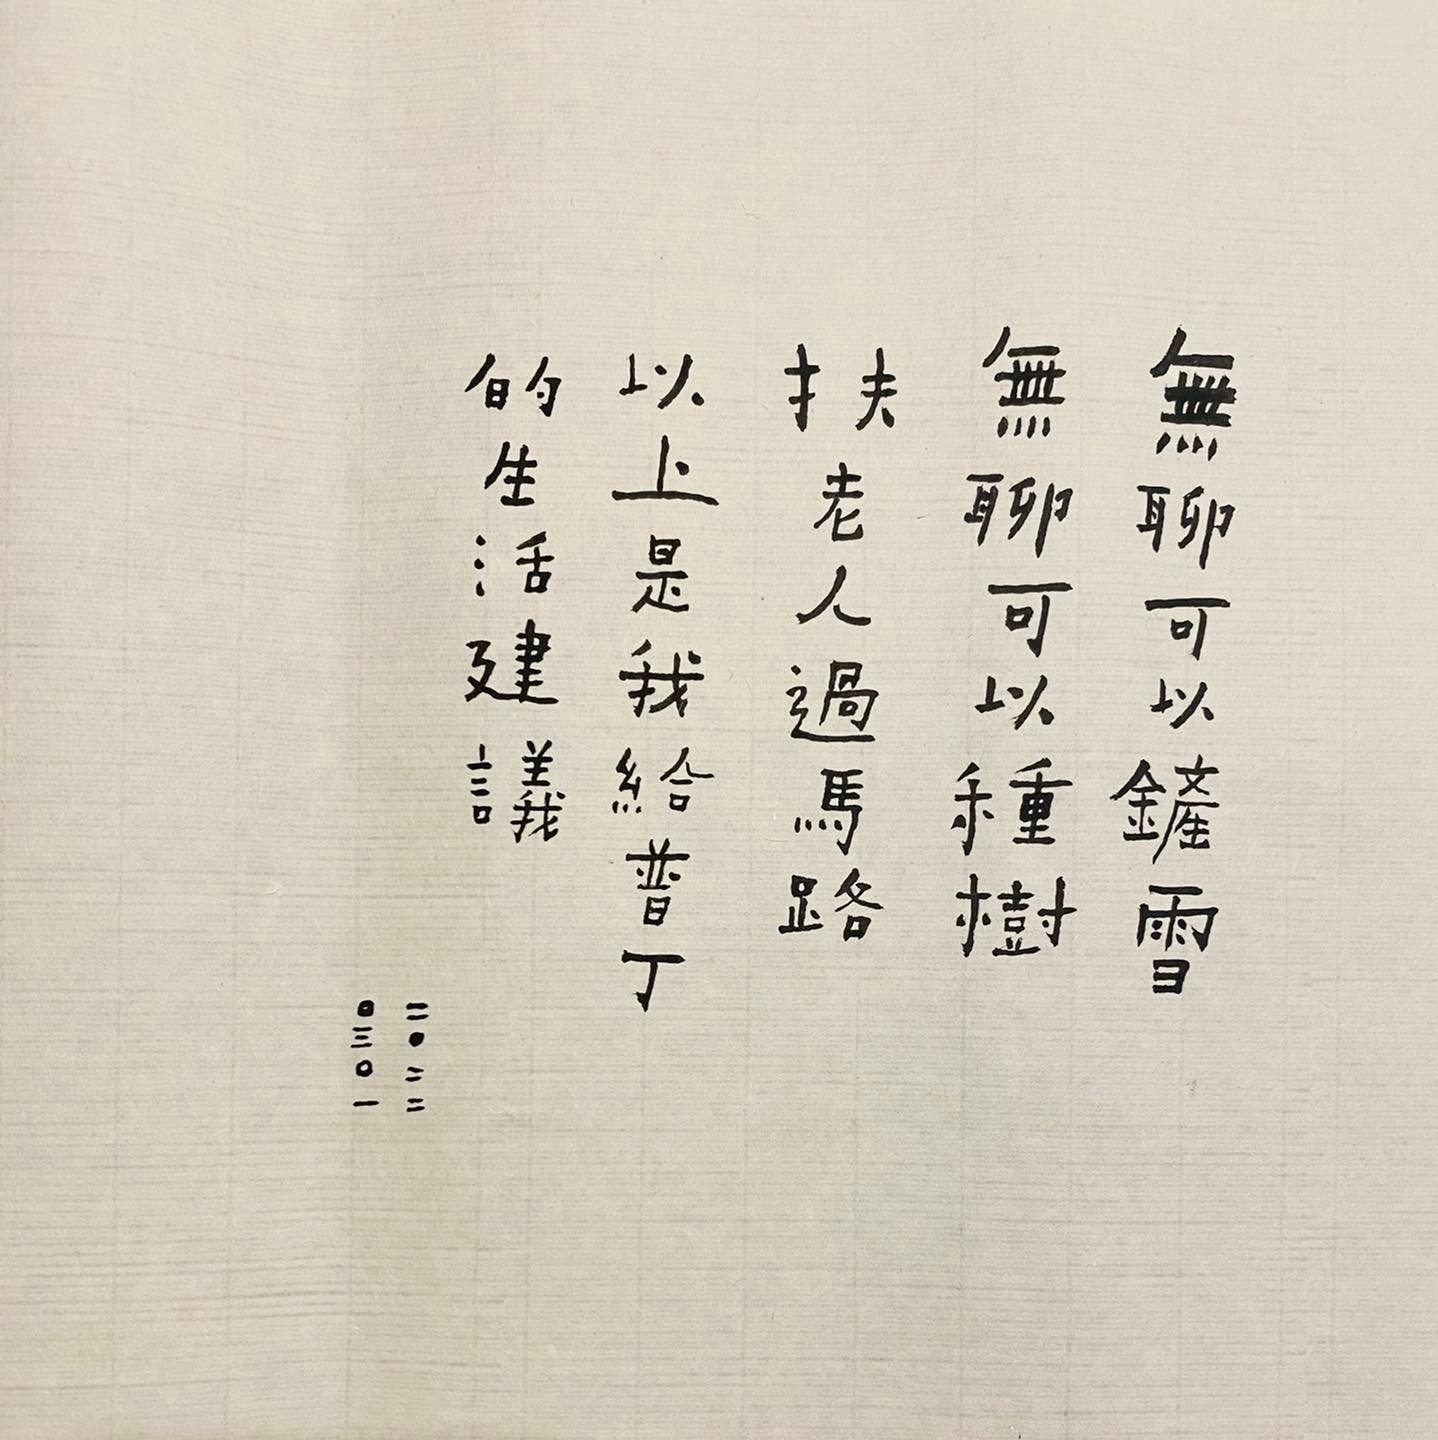 無聊可以鏟雪
無聊可以種樹
扶老人過馬路
以上是我給普丁
的生活建議
二〇二二
〇三〇一